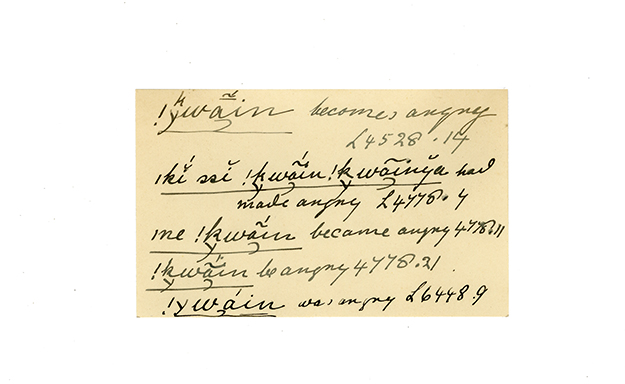 !kwā̃in becomes angry
L4528.14
ıkĭ ssĭ !kwā̃in !kwā̃inya had
made angry L4778.7
me !kwā̃in became angry 4778.11
!kwā̃in be angry 4778.21
!ywáin was angry L6448.9